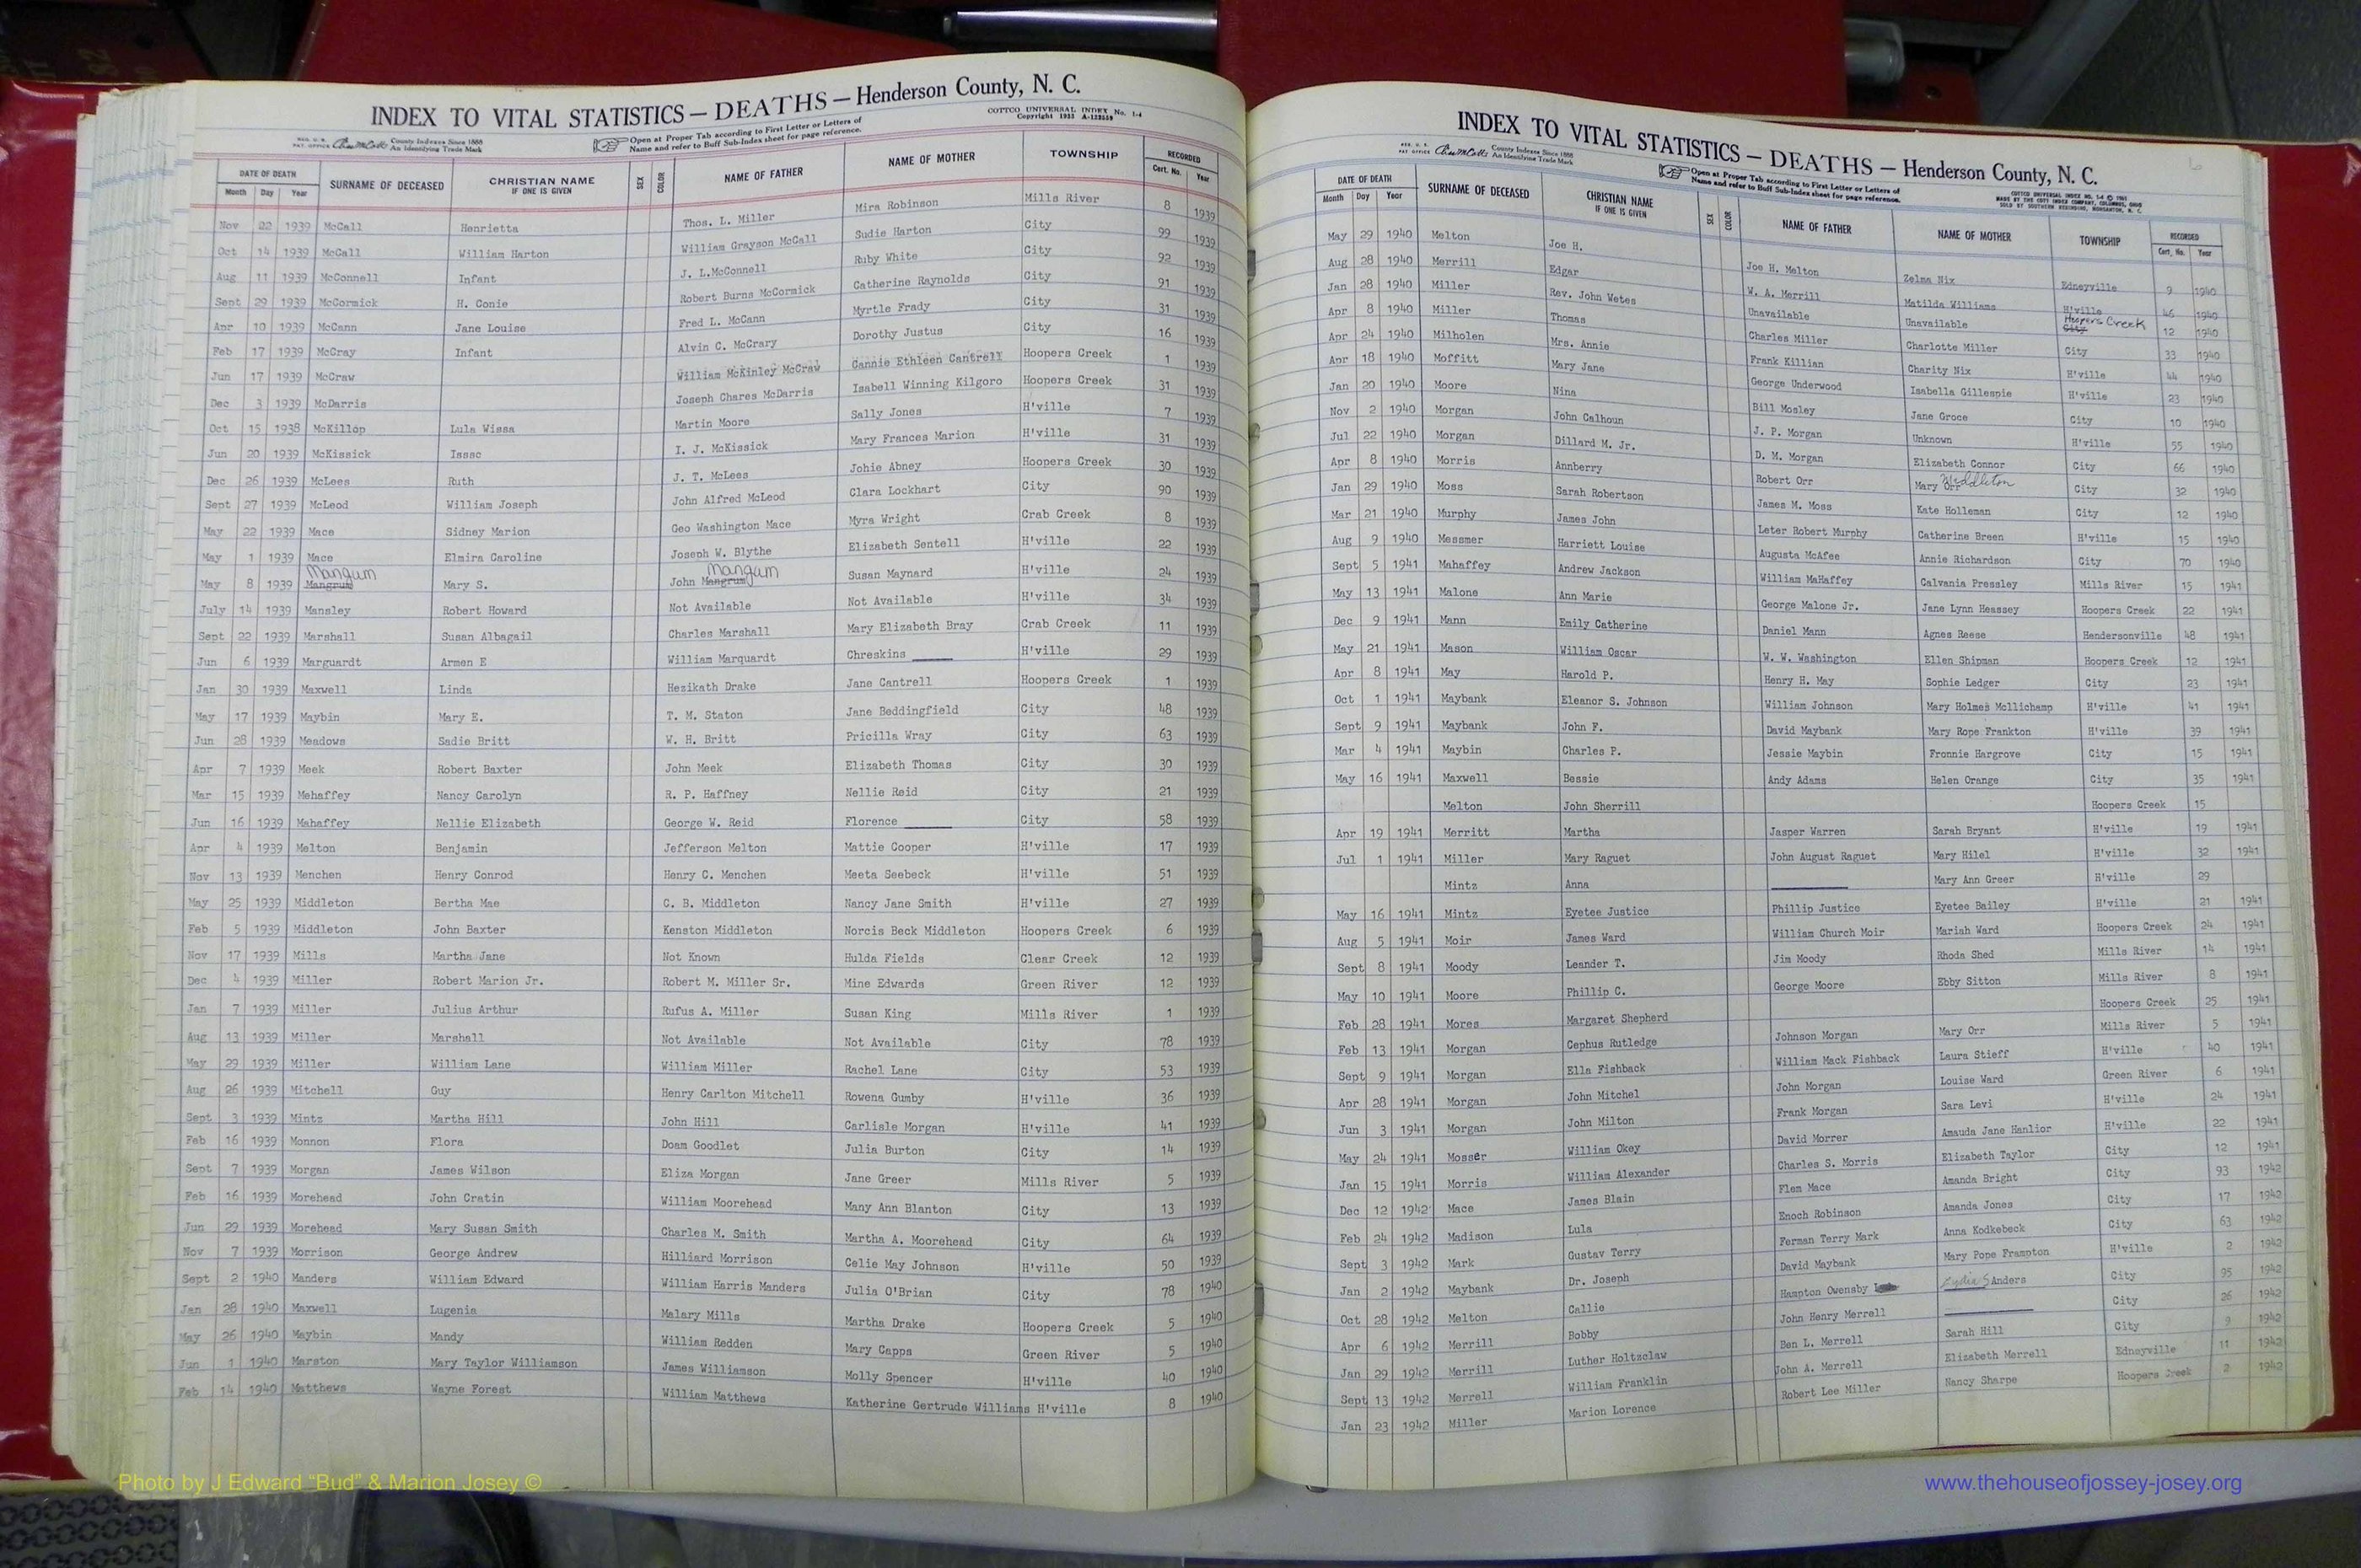 INDEX TO VITAL STATISTICS — DEATHS — Henderson County, N. C.
REG. U. S. PAT. OFFICE County Indexes Since 1888 An Identifying Trade Mark
Open at Proper Tab according to First Letter or Letters of Name and refer to Buff Sub-Index sheet for page reference.
COTTCO UNIVERSAL INDEX No. 1-4
Copyright 1935
DATE OF DEATH SURNAME OF DECEASED CHRISTIAN NAME IF ONE IS GIVEN SEX COLOR NAME OF FATHER NAME OF MOTHER TOWNSHIP RECORDED
Month Day Year Cert. No. Year
Nov 22 1939 McCall Henrietta Thos. L. Miller Mira Robinson Mills River 8 1939
Oct 14 1939 McCall William Harton William Grayson McCall Sudie Harton City 99 1939
Aug 11 1939 McConnell Infant J. L.McConnell Ruby White City 92 1939
Sept 29 1939 McCormick H. Conie Robert Burns McCormick Catherine Raynolds City 91 1939
Apr 10 1939 McCann Jane Louise Fred L. McCann Myrtle Frady City 31 1939
Feb 17 1939 McCray Infant Alvin C. McCrary Dorothy Justus City 16 1939
Jun 17 1939 McCraw William McKinley McCraw Cannie Ethleen Cantrell Hoopers Creek 1 1939
Dec 3 1939 McDarris Joseph Chares McDarris Isabell Winning Kilgoro Hoopers Creek 31 1939
Oct 15 1938 McKillop Lula Wissa Martin Moore Sally Jones H'ville 7 1939
Jun 20 1939 McKissick Issac I. J. McKissick Mary Frances Marion H'ville 31 1939
Dec 26 1939 McLees Ruth J. T. McLees Johie Abney Hoopers Creek 30 1939
Sept 27 1939 McLeod William Joseph John Alfred McLeod Clara Lockhart City 90 1939
May 22 1939 Mace Sidney Marion Geo Washington Mace Myra Wright Crab Creek 8 1939
May 1 1939 Mace Elmira Caroline Joseph W. Blythe Elizabeth Sentell H'ville 22 1939
Mangum Mangum
May 8 1939 Mangrum Mary S. John Mangrum Susan Maynard H'ville 24 1939
July 14 1939 Mansley Robert Howard Not Available Not Available H'ville 34 1939
Sept 22 1939 Marshall Susan Albagail Charles Marshall Mary Elizabeth Bray Crab Creek 11 1939
Jun 6 1939 Marguardt Armen E William Marquardt Chreskins H'ville 29 1939
Jan 30 1939 Maxwell Linda Hezikath Drake Jane Cantrell Hoopers Creek 1 1939
May 17 1939 Maybin Mary E. T. M. Staton Jane Beddingfield City 48 1939
Jun 28 1939 Meadows Sadie Britt W. H. Britt Pricilla Wray City 63 1939
Apr 7 1939 Meek Robert Baxter John Meek Elizabeth Thomas City 30 1939
Mar 15 1939 Mehaffey Nancy Carolyn R. P. Haffney Nellie Reid City 21 1939
Jun 16 1939 Mahaffey Nellie Elizabeth George W. Reid Florence City 58 1939
Apr 4 1939 Melton Benjamin Jefferson Melton Mattie Cooper H'ville 17 1939
Nov 13 1939 Menchen Henry Conrod Henry C. Menchen Meeta Seebeck H'ville 51 1939
May 25 1939 Middleton Bertha Mae C. B. Middleton Nancy Jane Smith H'ville 27 1939
Feb 5 1939 Middleton John Baxter Kenston Middleton Norcis Beck Middleton Hoopers Creek 6 1939
Nov 17 1939 Mills Martha Jane Not Known Hulda Fields Clear Creek 12 1939
Dec 4 1939 Miller Robert Marion Jr. Robert M. Miller Sr. Mine Edwards Green River 12 1939
Jan 7 1939 Miller Julius Arthur Rufus A. Miller Susan King Mills River 1 1939
Aug 13 1939 Miller Marshall Not Available Not Available City 78 1939
May 29 1939 Miller William Lane William Miller Rachel Lane City 53 1939
Aug 26 1939 Mitchell Guy Henry Carlton Mitchell Rowena Gumby H'ville 36 1939
Sept 3 1939 Mintz Martha Hill John Hill Carlisle Morgan H'ville 41 1939
Feb 16 1939 Monnon Flora Doam Goodlet Julia Burton City 14 1939
Sept 7 1939 Morgan James Wilson Eliza Morgan Jane Greer Mills River 5 1939
Feb 16 1939 Morehead John Cratin William Moorehead Many Ann Blanton City 13 1939
Jun 29 1939 Morehead Mary Susan Smith Charles M. Smith Martha A. Moorehead City 64 1939
Nov 7 1939 Morrison George Andrew Hilliard Morrison Celie May Johnson H'ville 50 1939
Sept 2 1940 Manders William Edward William Harris Manders Julia O'Brian City 78 1940
Jan 28 1940 Maxwell Lugenia Malary Mills Martha Drake Hoopers Creek 5 1940
May 26 1940 Maybin Mandy William Redden Mary Capps Green River 5 1940
Jun 1 1940 Marston Mary Taylor Williamson James Williamson Molly Spencer H'ville 40 1940
Feb 14 1940 Matthews Wayne Forest William Matthews Katherine Gertrude Williams H'ville 8 1940
INDEX TO VITAL STATISTICS — DEATHS — Henderson County, N. C.
REG. U. S. PAT. OFFICE County Indexes Since 1888 An Identifying Trade Mark
Open at Proper Tab according to First Letter or Letters of Name and refer to Buff Sub-Index sheet for page reference.
DATE OF DEATH SURNAME OF DECEASED CHRISTIAN NAME IF ONE IS GIVEN SEX COLOR NAME OF FATHER NAME OF MOTHER TOWNSHIP RECORDED
Month Day Year Cert. No. Year
May 29 1940 Melton Joe H. Joe H. Melton Zelma Nix Edneyville 9 1940
Aug 28 1940 Merrill Edgar W. A. Merrill Matilda Williams H'ville 46 1940
Jan 28 1940 Miller Rev. John Wetes Unavailable Unavailable Hoopers Creek City 12 1940
Apr 8 1940 Miller Thomas Charles Miller Charlotte Miller City 33 1940
Apr 24 1940 Milholen Mrs. Annie Frank Killian Charity Nix H'ville 44 1940
Apr 18 1940 Moffitt Mary Jane George Underwood Isabella Gillespie H'ville 23 1940
Jan 20 1940 Moore Nina Bill Mosley Jane Groce City 10 1940
Nov 2 1940 Morgan John Calhoun J. P. Morgan Unknown H'ville 55 1940
Jul 22 1940 Morgan Dillard M. Jr. D. M. Morgan Elizabeth Connor City 66 1940
Apr 8 1940 Morris Annberry Robert Orr Mary Orr Middleton City 32 1940
Jan 29 1940 Moss Sarah Robertson James M. Moss Kate Holleman City 12 1940
Mar 21 1940 Murphy James John Leter Robert Murphy Catherine Breen H'ville 15 1940
Aug 9 1940 Messmer Harriett Louise Augusta McAfee Annie Richardson City 70 1940
Sept 5 1941 Mahaffey Andrew Jackson William MaHaffey Calvania Pressley Mills River 15 1941
May 13 1941 Malone Ann Marie George Malone Jr. Jane Lynn Heassey Hoopers Creek 22 1941
Dec 9 1941 Mann Emily Catherine Daniel Mann Agnes Reese Hendersonville 48 1941
May 21 1941 Mason William Oscar W. W. Washington Ellen Shipman Hoopers Creek 12 1941
Apr 8 1941 May Harold P. Henry H. May Sophie Ledger City 23 1941
Oct 1 1941 Maybank Eleanor S. Johnson William Johnson Mary Holmes Mcllichamp H'ville 41 1941
Sept 9 1941 Maybank John F. David Maybank Mary Rope Frankton H'ville 39 1941
Mar 4 1941 Maybin Charles P. Jessie Maybin Fronnie Hargrove City 15 1941
May 16 1941 Maxwell Bessie Andy Adams Helen Orange City 35 1941
Melton John Sherrill Hoopers Creek 15
Apr 19 1941 Merritt Martha Jasper Warren Sarah Bryant H'ville 19 1941
Jul 1 1941 Miller Mary Raguet John August Raguet Mary Hilel H'ville 32 1941
Mintz Anna Mary Ann Greer H'ville 29
May 16 1941 Mintz Eyetee Justice Phillip Justice Eyetee Bailey H'ville 21 1941
Aug 5 1941 Moir James Ward William Church Moir Mariah Ward Hoopers Creek 24 1941
Sept 8 1941 Moody Leander T. Jim Moody Rhoda Shed Mills River 14 1941
May 10 1941 Moore Phillip C. George Moore Ebby Sitton Mills River 8 1941
Feb 28 1941 Mores Margaret Shepherd Hoopers Creek 25 1941
Feb 13 1941 Morgan Cephus Rutledge Johnson Morgan Mary Orr Mills River 5 1941
Sept 9 1941 Morgan Ella Fishback William Mack Fishback Laura Stieff H'ville 40 1941
Apr 28 1941 Morgan John Mitchel John Morgan Louise Ward Green River 6 1941
Jun 3 1941 Morgan John Milton Frank Morgan Sara Levi H'ville 24 1941
May 24 1941 Mosser William Okey David Morrer Amauda Jane Hanlior H'ville 22 1941
Jan 15 1941 Morris William Alexander Charles S. Morris Elizabeth Taylor City 12 1941
Dec 12 1942 Mace James Blain Flem Mace Amanda Bright City 93 1942
Feb 24 1942 Madison Lula Enoch Robinson Amanda Jones City 17 1942
Sept 3 1942 Mark Gustav Terry Ferman Terry Mark Anna Kodkebeck City 63 1942
Jan 2 1942 Maybank Dr. Joseph David Maybank Mary Pope Frampton H'ville 2 1942
Oct 28 1942 Melton Callie Hampton Owensby Lydia Sanders City 95 1942
Apr 6 1942 Merrill Bobby John Henry Merrell City 26 1942
Jan 29 1942 Merrill Luther Holtzclaw Ben L. Merrell Sarah Hill City 9 1942
Sept 13 1942 Merrell William Franklin John A. Merrell Elizabeth Merrell Edneyville 11 1942
Jan 23 1942 Miller Marion Lorence Robert Lee Miller Nancy Sharpe Hoopers Creek 2 1942
Photo by J Edward "Bud" & Marion Josey ©
www.thehouseofjossey-josey.org